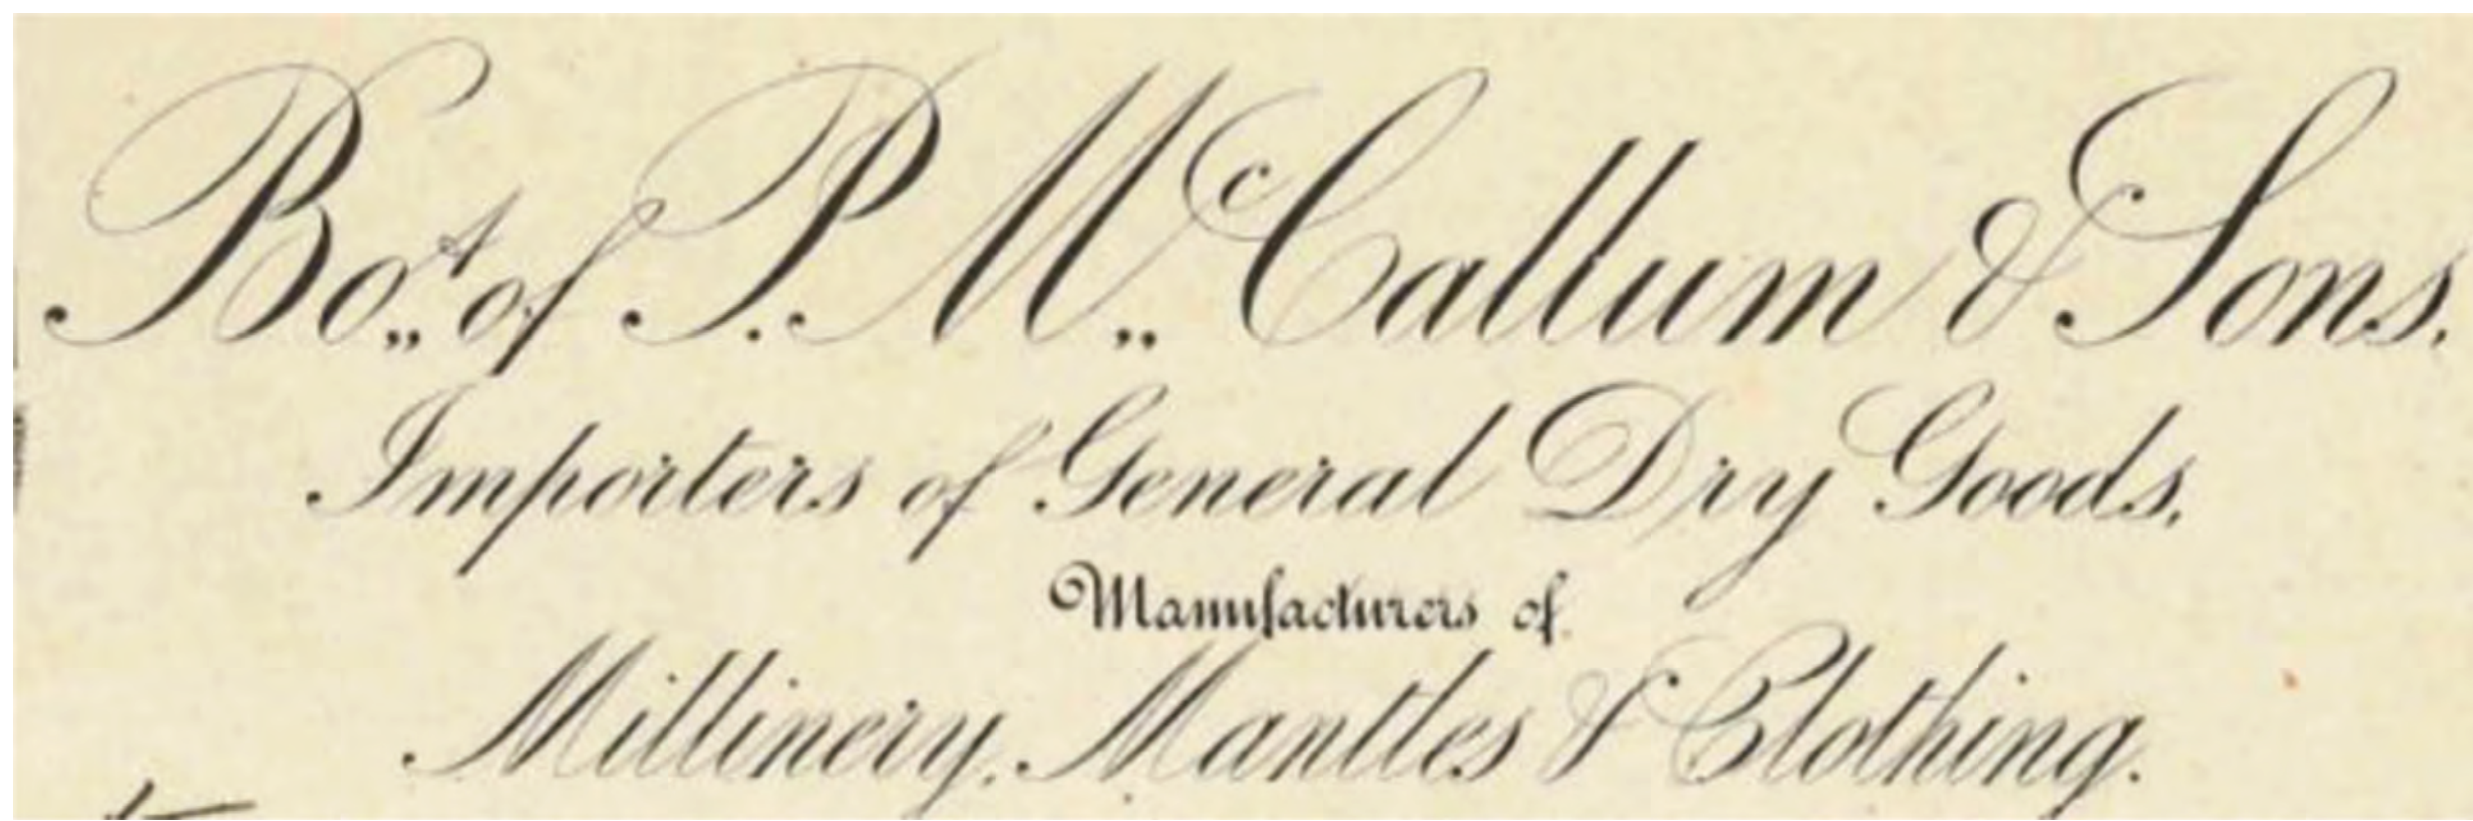 Bot of P. Mc Callum & Sons.
Importers of General Dry Goods,
Manufacturers of
Millinery, Mantles & Clothing.